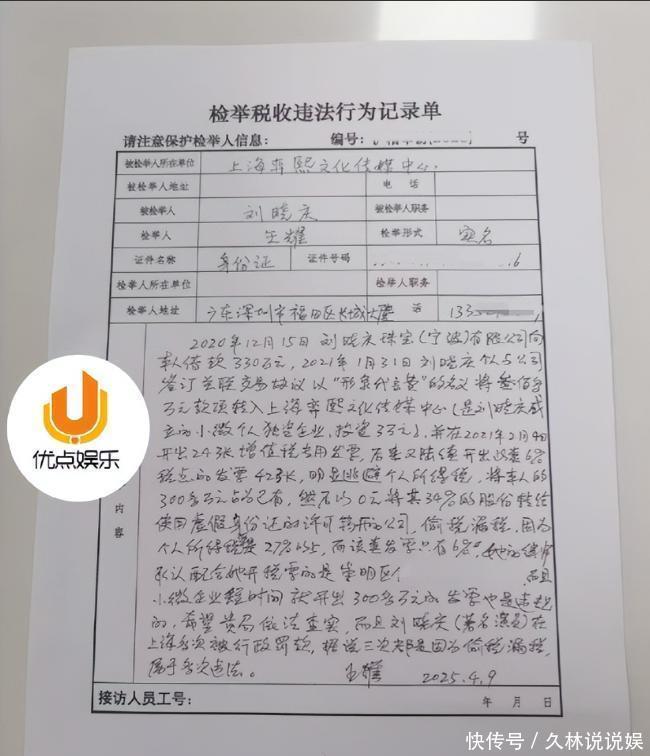 检举税收违法行为记录单
请注意保护检举人信息: 编号: 号
被检举人所在单位 上海弈熙文化传媒中心.
被检举人地址 电 话
被检举人 刘晓庆 被检举人职务
检举人 王耀 检举形式 实名
证件名称 身份证 证件号码 6
检举人所在单位 检举人职务
检举人地址 广东深圳市福田区长城大厦 话 133
2020年12月15日刘晓庆珠宝(宁波)有限公司向
本人借款330万元,2021年1月31日刘晓庆个人与公司
签订关联交易协议以"形象代言费"的名义将叁佰多
万元款项转入上海弈熙文化传媒中心(是刘晓庆成
立的小微个人独资企业,投资3万元),并在2021年2月4日
开出243张增值税专用发票,后来又陆续开出这套6%
税点的发票423张,明显逃避个人所得税,将本人的
300多万元占为己有,然后以0元将其34%的股份转给
使用虚假身份证的许可 的公司,偷税漏税,因为
个人所得税 而该套发票只有6%。她的律师
承认配合她开税票的是崇明区 而且
小微企业短时间就开出300多万元的发票也是违规
的,希望贵局依法查实,而且刘晓庆(著名演员)在
上海多次被行政罚款,据说三次都是因为偷税漏税,
属于多次违法。
王耀 2025.4.9
内
容
接访人员工号: 年 月 日
优点娱乐
快传号/久林说说娱